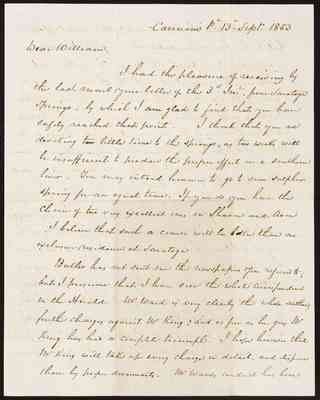 Cannons Pt 13th Sept. 1853
Dear William,
I had the pleasure of receiving by
the last mail your letter of the 3d Inst. from Saratoga
Springs, by which I am glad to find that you have
safely reached that point. I think that you are
devoting too little time to the springs, as two weeks will
be insufficient to produce the proper effect on a southern
liver. You may intend however to go to some sulphur
spring for an equal time. If you do you have the
choice of two very excellent ones in Sharon and Avon
I believe that such a course will be better than an
exclusive residence at Saratoga
Butler has not sent me the newspaper you request,
but I presume that I have seen the whole correspondence
in the Herald. Mr Ward is very clearly the whole author
of the charges against Mr King; and as far as he goes Mr
King has had a complete triumph. I hope however that
Mr King will take up every charge in detail, and disprove
them by proper documents. Mr Wards conduct has been